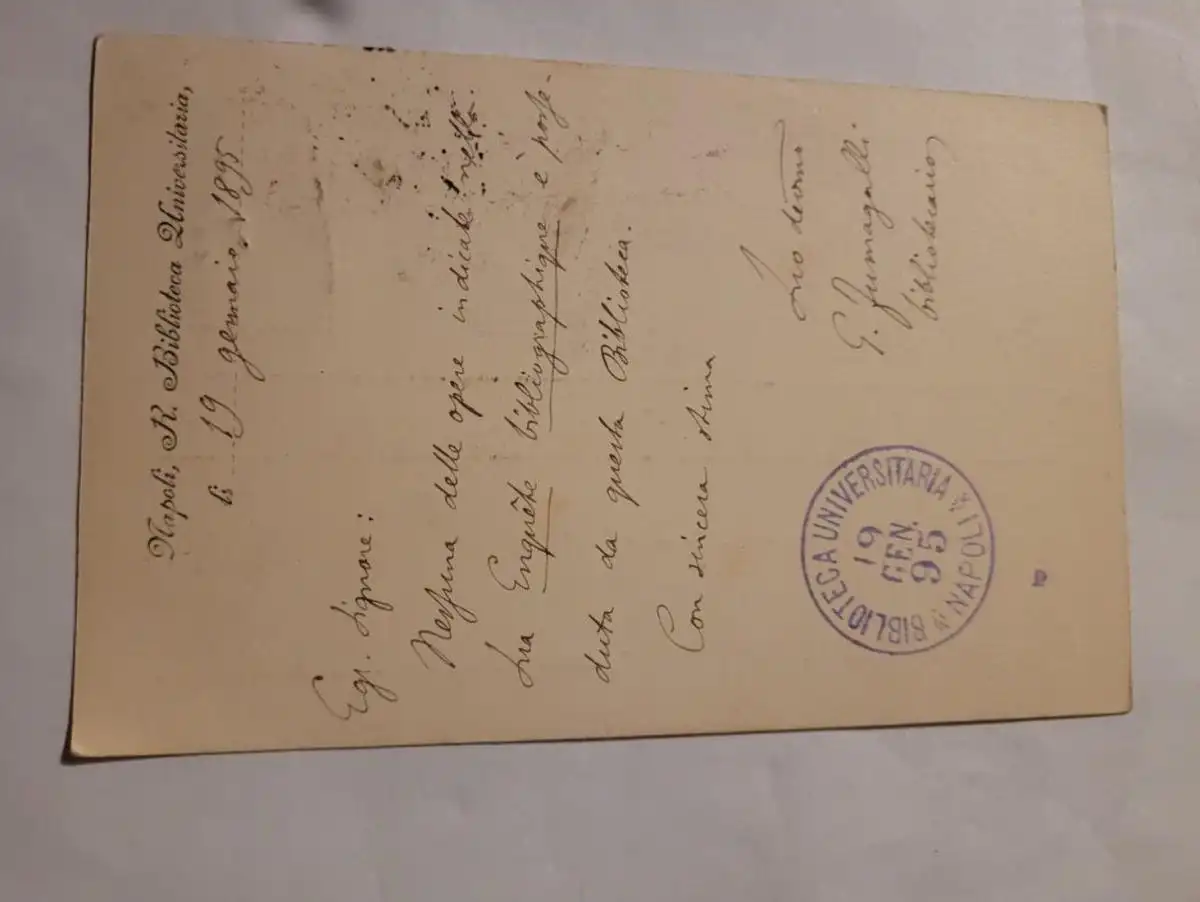 Napoli, R. Biblioteca Universitaria,
li 19 gennaio 1895
Egr. Signore:
Nessuna delle opere indicate nella
Sua Enquête bibliographique è posse-
duta da questa Biblioteca.
Con sincera stima
Suo devmo
G. Fumagalli
bibliotecario
BIBLIOTECA UNIVERSITARIA NAPOLI
19
GEN.
95